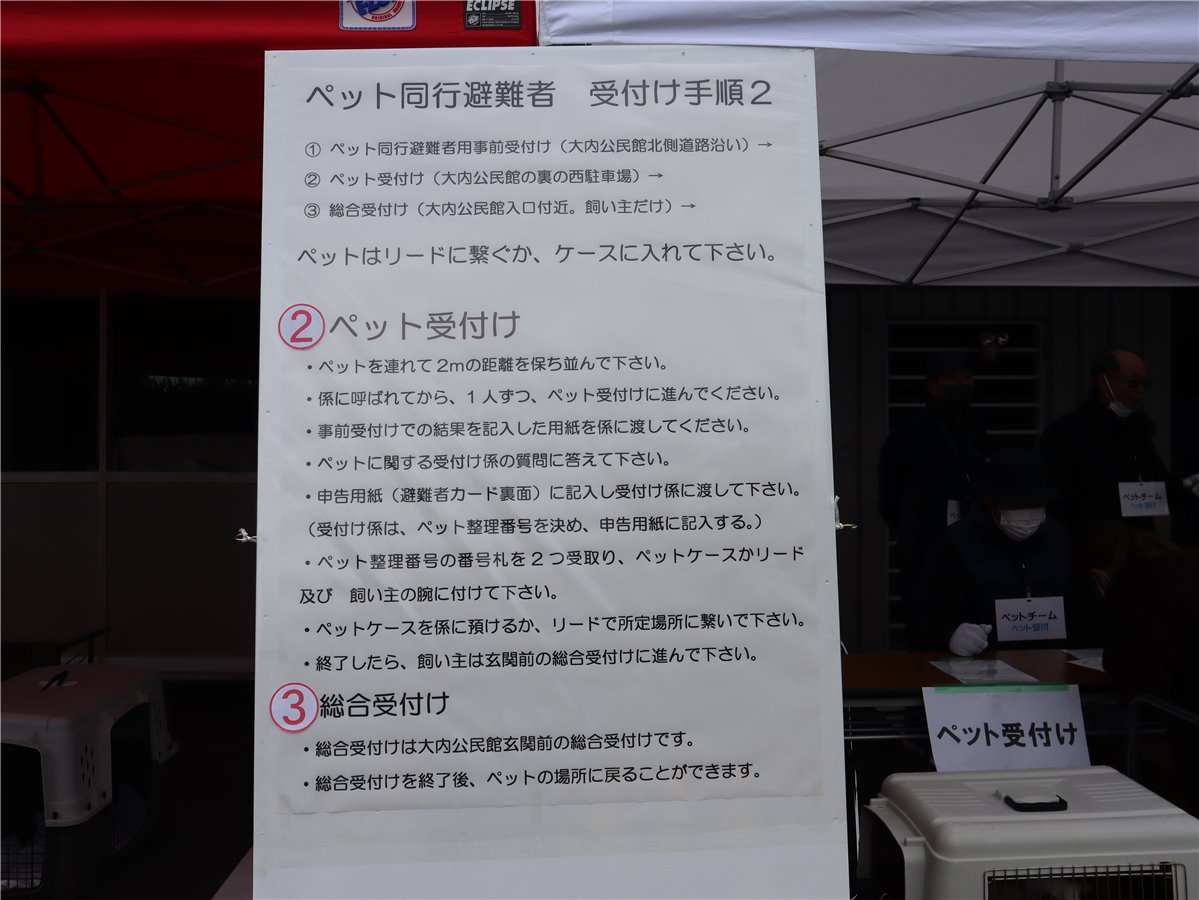 ECLIPSE
ペット同行避難者　受付け手順２
① ペット同行避難者用事前受付け（大内公民館北側道路沿い）→
② ペット受付け（大内公民館の裏の西駐車場）→
③ 総合受付け（大内公民館入口付近。飼い主だけ）→
ペットはリードに繋ぐか、ケースに入れて下さい。
②ペット受付け
・ペットを連れて２mの距離を保ち並んで下さい。
・係に呼ばれてから、１人ずつ、ペット受付けに進んでください。
・事前受付けでの結果を記入した用紙を係に渡してください。
・ペットに関する受付け係の質問に答えて下さい。
・申告用紙（避難者カード裏面）に記入し受付け係に渡して下さい。
（受付け係は、ペット整理番号を決め、申告用紙に記入する。）
・ペット整理番号の番号札を２つ受取り、ペットケースかリード
及び　飼い主の腕に付けて下さい。
・ペットケースを係に預けるか、リードで所定場所に繋いで下さい。
・終了したら、飼い主は玄関前の総合受付けに進んで下さい。
③総合受付け
・総合受付けは大内公民館玄関前の総合受付けです。
・総合受付けを終了後、ペットの場所に戻ることができます。
ペットチーム
ペット受付
ペットチーム
ペット受付
ペット受付け